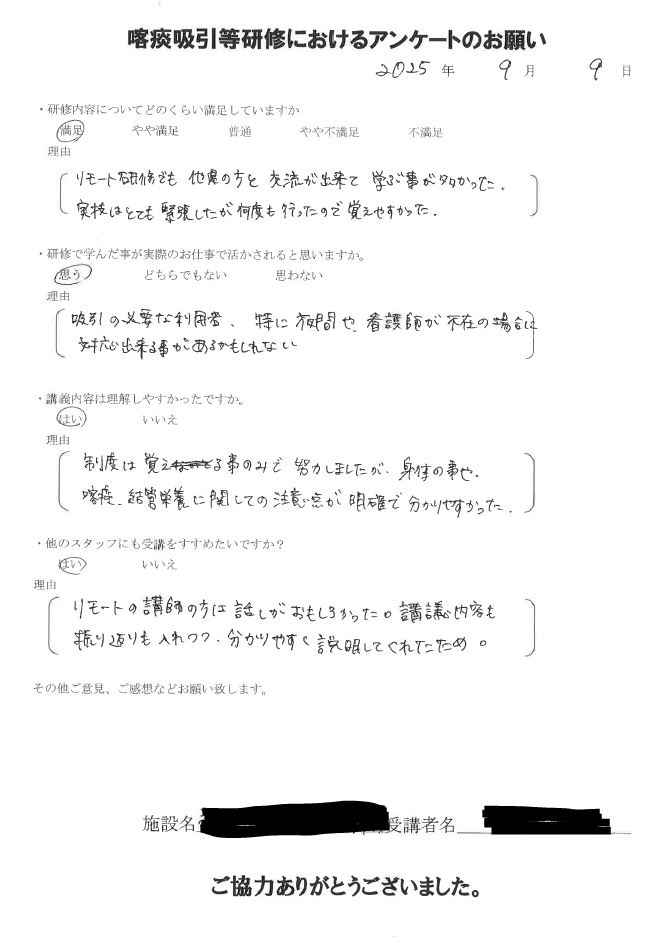 喀痰吸引等研修におけるアンケートのお願い
2025 年 9 月 9 日
・研修内容についてどのくらい満足していますか
満足 やや満足 普通 やや不満足 不満足
理由
リモート研修でも 他県の方と 交流が出来て 学ぶ事が多かった。
実技はとても緊張したが何度も行ったので覚えやすかった。
・研修で学んだ事が実際のお仕事で活かされると思いますか。
思う どちらでもない 思わない
理由
吸引の必要な利用者、特に夜間や、看護師が不在の場合に
対応出来る事があるかもしれない
・講義内容は理解しやすかったですか。
はい いいえ
理由
制度は覚える事のみで努力しましたが、身体の事や、
喀痰、経管栄養に関しての注意点が明確で分かりやすかった。
・他のスタッフにも受講をすすめたいですか?
はい いいえ
理由
リモートの講師の方は話しがおもしろかった。講議内容も
振り返りも入れつつ、分かりやすく説明してくれたため。
その他ご意見、ご感想などお願い致します。
施設名 受講者名
ご協力ありがとうございました。